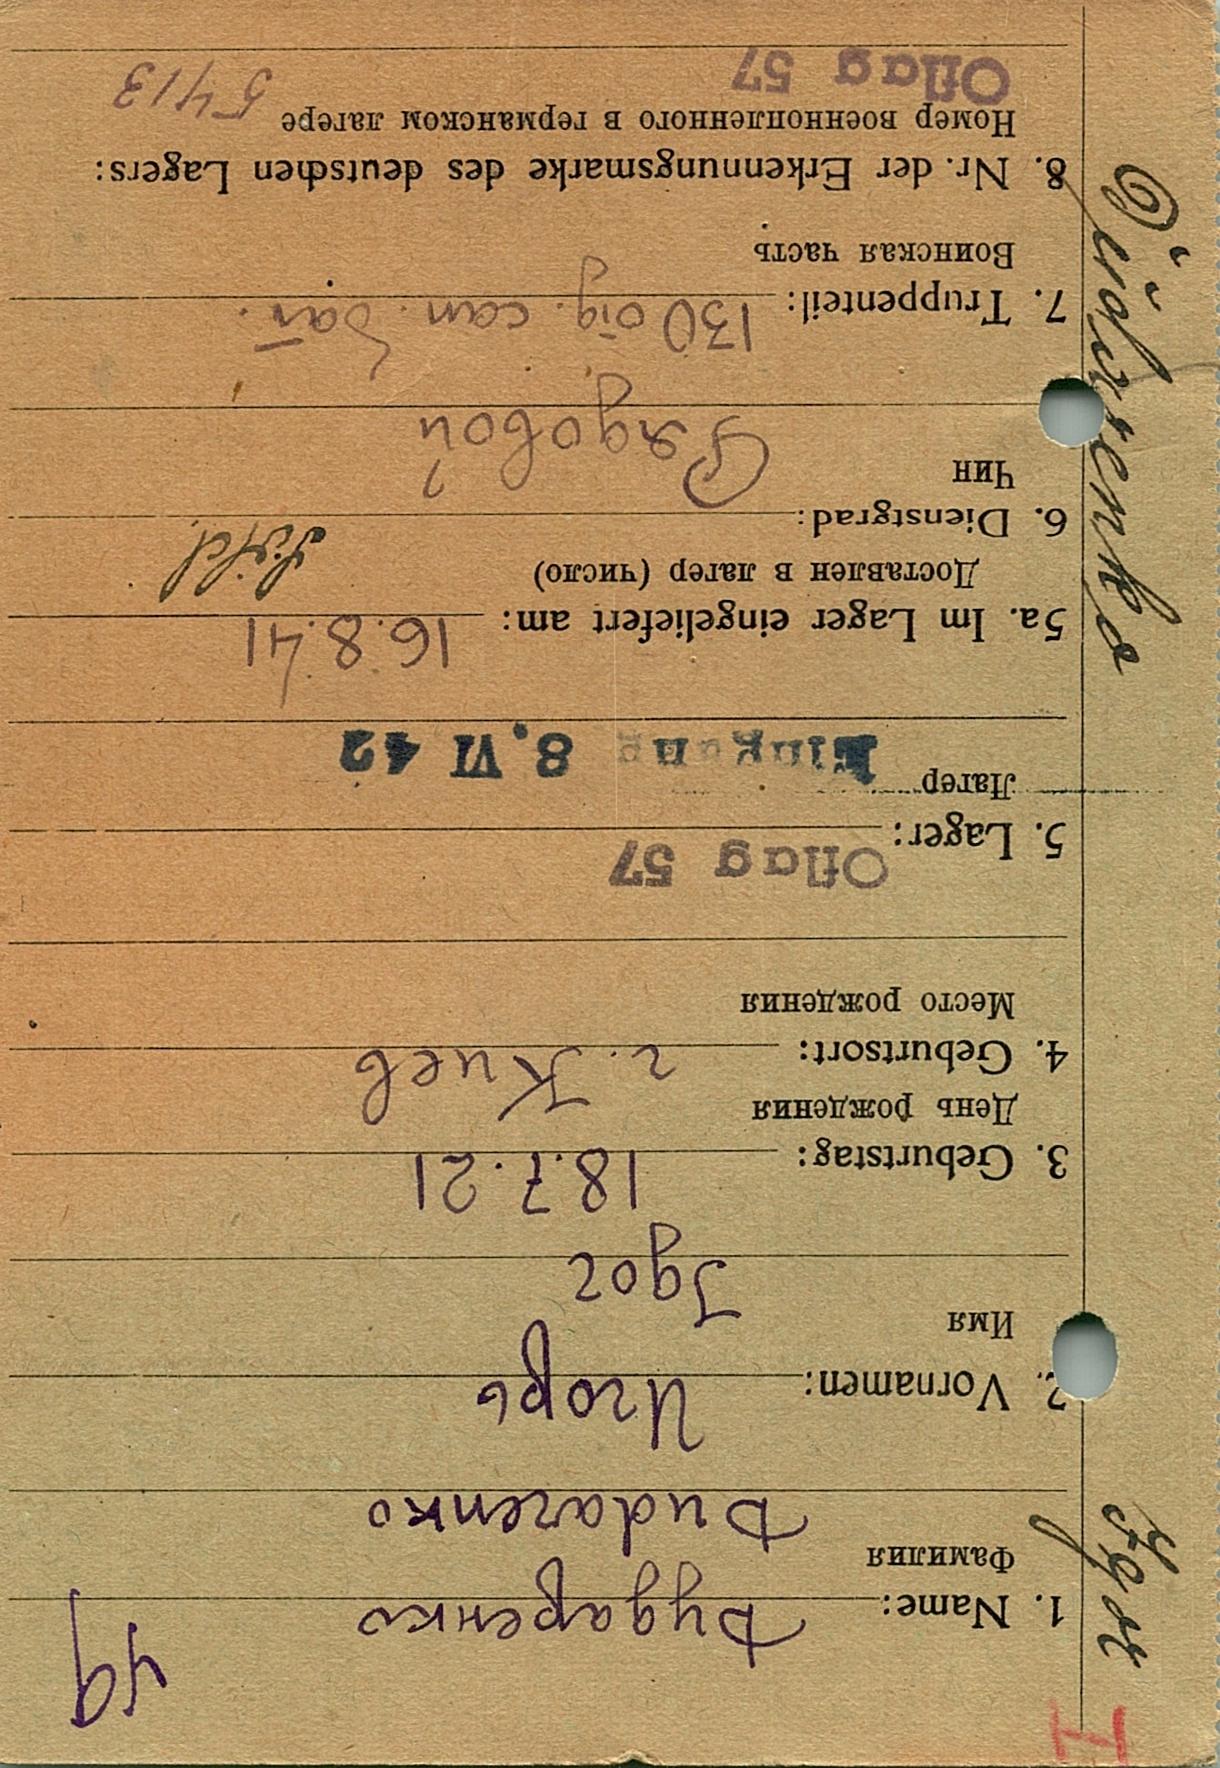 49
1. Name: Дударенко
Фамилия
Dudarenko
2. Vornamen: Игорь
Имя
Igor
3. Geburtstag: 18.7.21
День рождения
4. Geburtsort: г. Киев
Место рождения
5. Lager: Oflag 57
Лагер Eingang 8. VI 42
5a. Im Lager eingeliefert am: 16.8.41
Доставлен в лагер (число)
6. Dienstgrad: Sold.
Чин Рядовой
7. Truppenteil: 130 сан. бат.
Воинская часть
8. Nr. der Erkennungsmarke des deutschen Lagers:
Номер военнопленного в германском лагере 5413
Oflag 57
Igor Düdarenko